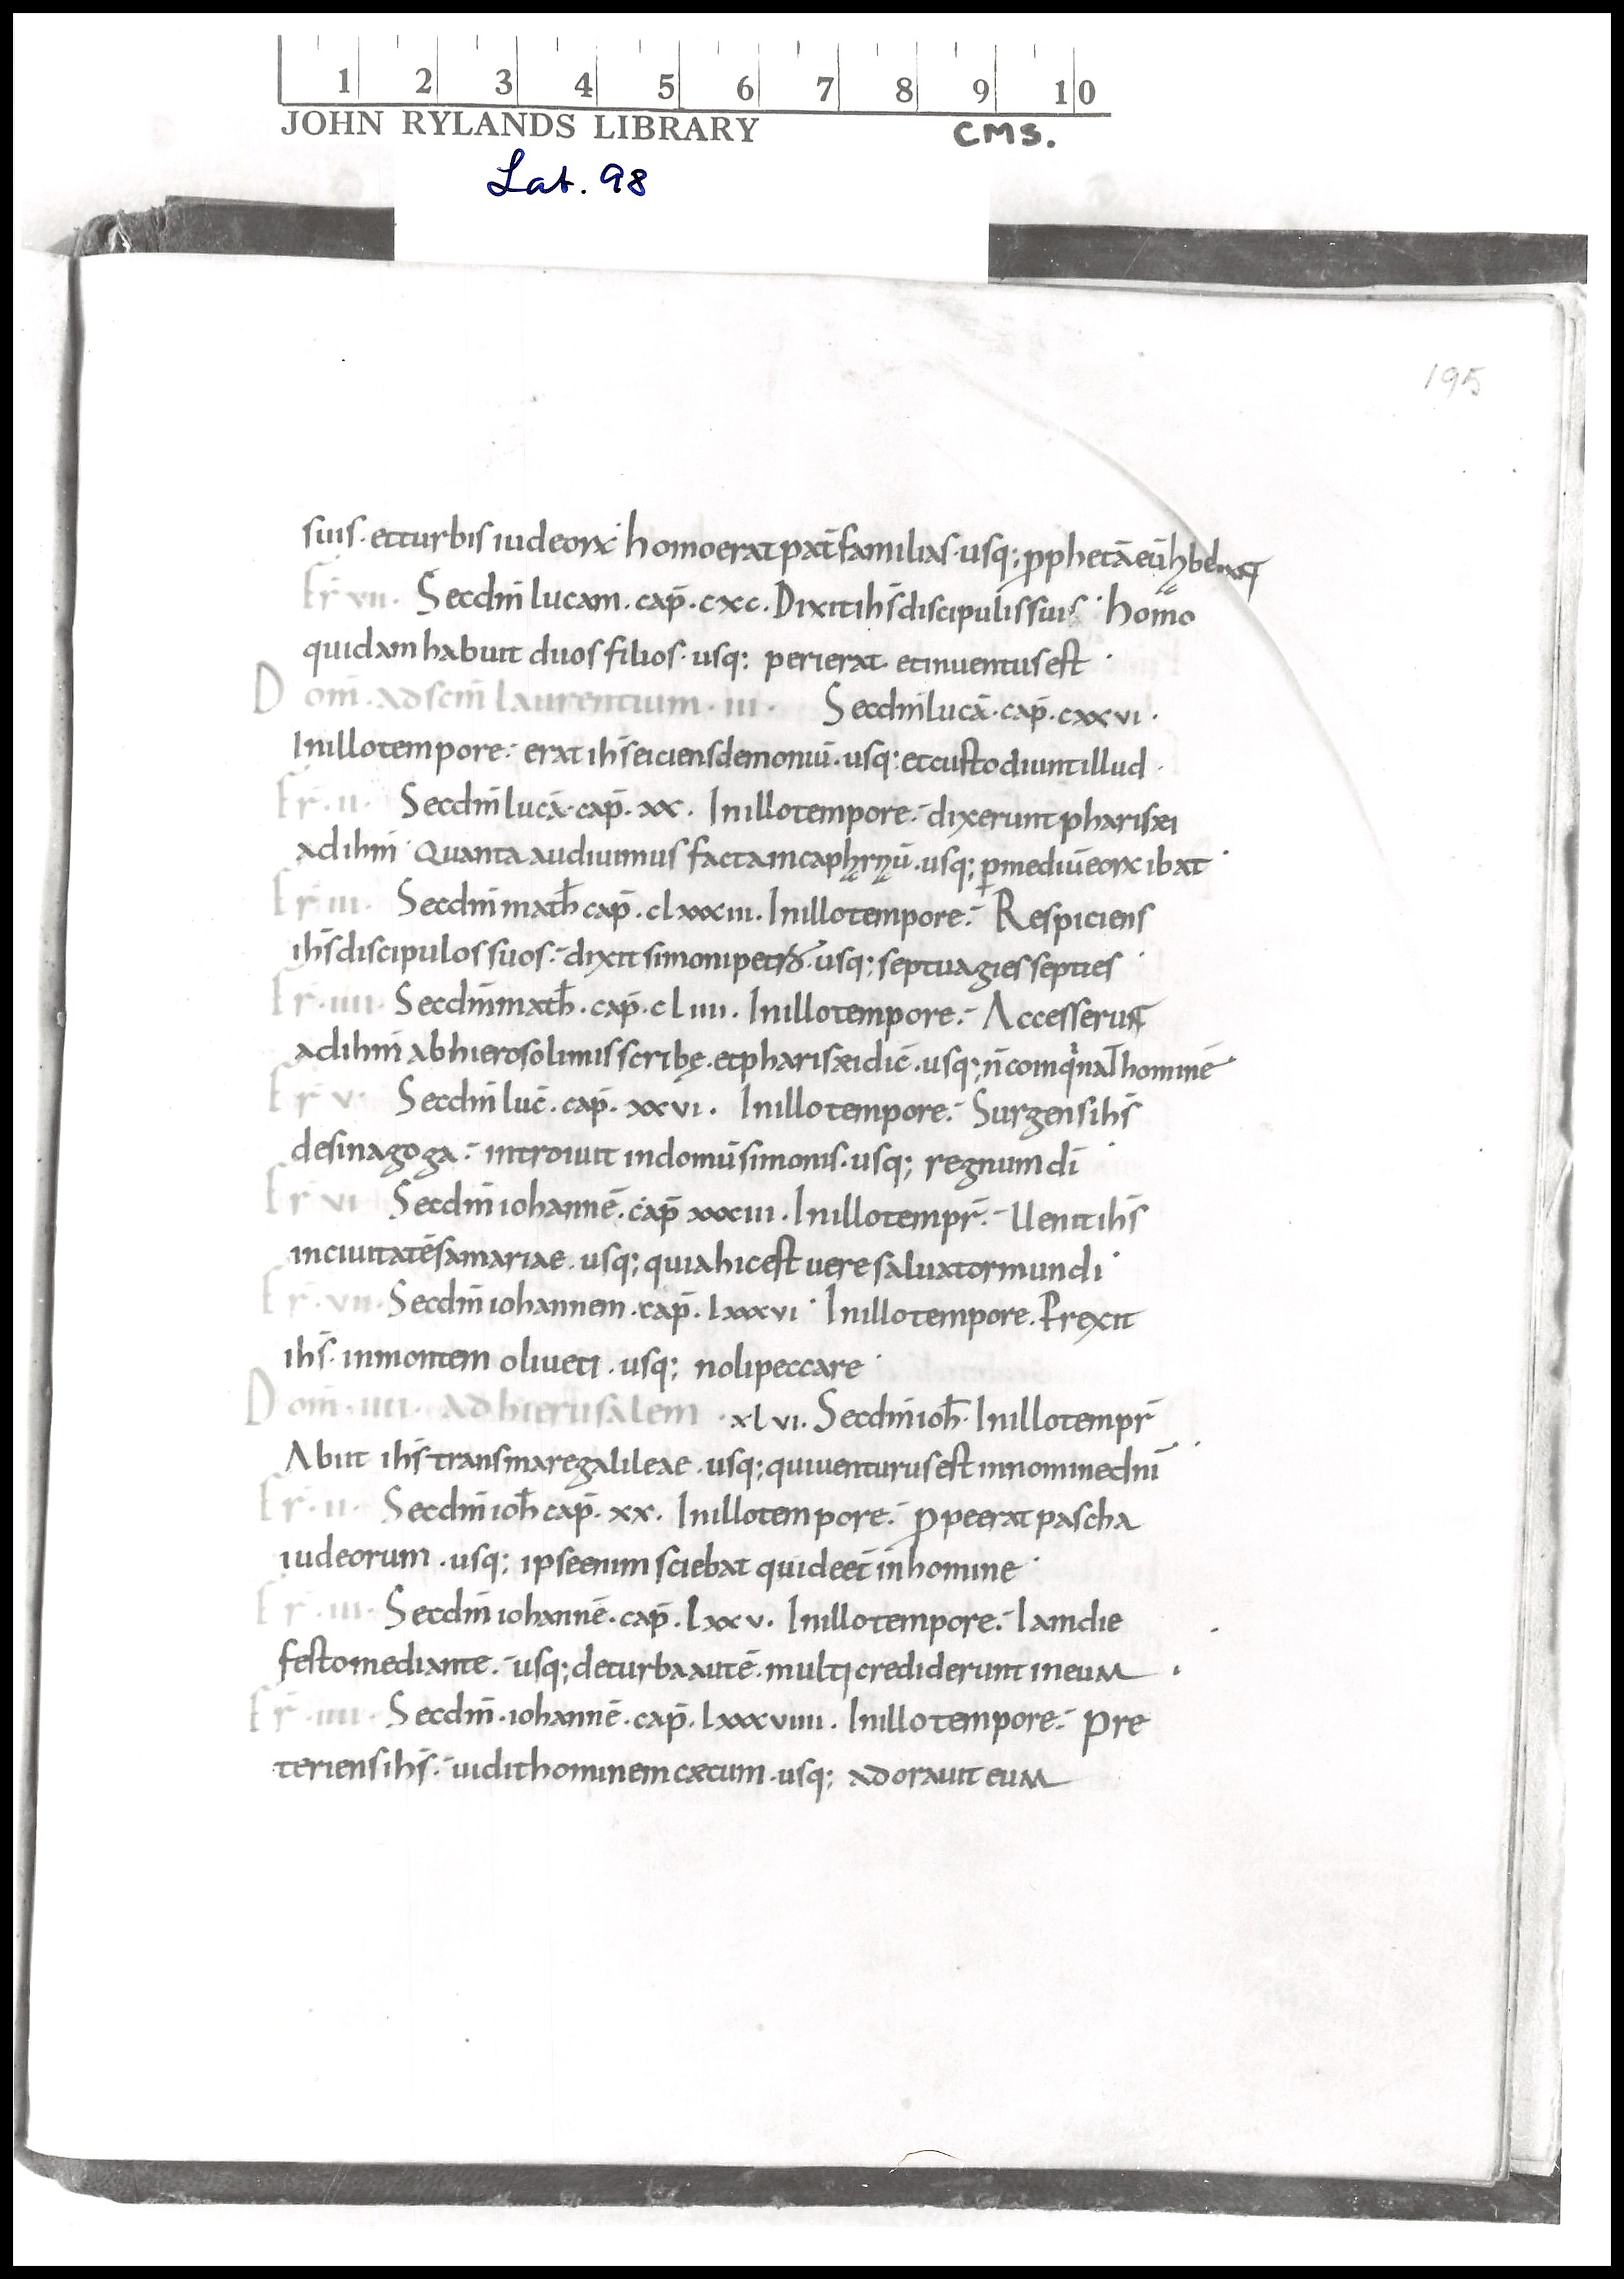 1 2 3 4 5 6 7 8 9 10
JOHN RYLANDS LIBRARY CMS.
Lat. 98
195
suis · et turbis iudeorꝝ · homo erat pat̄ familias · usq; ꝓphetā eū
Fr̄ · vii · Secdm̄ lucam · cap̄ · cxc · Dixit ih̄s discipulis suis · homo
quidam habuit duos filios · usq; perierat et inuentus est ·
Dom̄ · ad sc̄m laurentium · iii · Secdm̄ lucā · cap̄ · cxxvi ·
In illo tempore :- erat ih̄s eiciens demoniū · usq; et custodiunt illud ·
Fr̄ · ii · Secdm̄ lucā · cap̄ · xx · In illo tempore :- dixerunt pharisæi
ad ih̄m · Quanta audiuimus facta in · usq; ꝑ mediū eorꝝ ibat ·
Fr̄ iii · Secdm̄ math̄ cap̄ · clxxxiii · In illo tempore :- Respiciens
ih̄s discipulos suos :- dixit simoni petro · usq; septuagies septies ·
Fr̄ · iiii · Secdm̄ math̄ · cap̄ · cliiii · In illo tempore :- Accesserunt
ad ih̄m ab hierosolimis scribę · et pharisæi dic̄ · usq; n̄ coinqͥnat hominē ·
Fr̄ v · Secdm̄ luc̄ · cap̄ · xxvi · In illo tempore :- Surgens ih̄s
de sinagoga :- introiuit in domū simonis · usq; regnum dī ·
Fr̄ vi Secdm̄ iohannē · cap̄ xxxiii · In illo tempr̄ :- Uenit ih̄s
in ciuitatē samariae · usq; quia hic est uere saluator mundi ·
Fr̄ · vii · Secdm̄ iohannem · cap̄ · lxxxvi · In illo tempore · Prexit
ih̄s · in montem oliueti · usq; noli peccare ·
Dom̄ · iiii · ad hierusalem · xlvi · Secdm̄ ioh̄ · In illo tempr̄
Abiit ih̄s trans mare galileae · usq; qui uenturus est in nomine dn̄i ·
Fr̄ · ii · Secdm̄ ioh̄ cap̄ · xx · In illo tempore :- ꝓpe erat pascha
iudeorum · usq; ipse enim sciebat quid eet̄ in homine ·
Fr̄ · iii · Secdm̄ iohannē · cap̄ · lxxv · In illo tempore :- Iam die
festo mediante :- usq; de turba autē · multi crediderunt in eum ·
Fr̄ · iiii · Secdm̄ · iohannē · cap̄ · lxxxviiii · In illo tempore :- Pre
teriens ih̄s :- uidit hominem cæcum · usq; adorauit eum